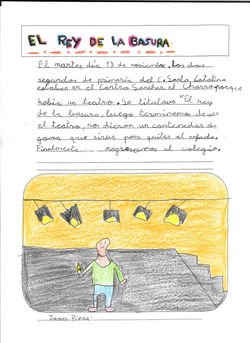 EL REY DE LA BASURA
El martes día 13 de noviembre, los dos
segundos de primaria del C. Santa Catalina
estaban en el Centro Sanchez el Charro porque
había un teatro. Se titulava "El rey
de la basura, luego terminamos de ver
el teatro, nos dieron un contenedor de
goma que sirve para quitar el enfado.
Finalmente regresamos al colegio.
Javier